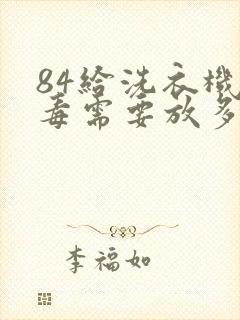 84給洗衣機
毒需要放多
李福如